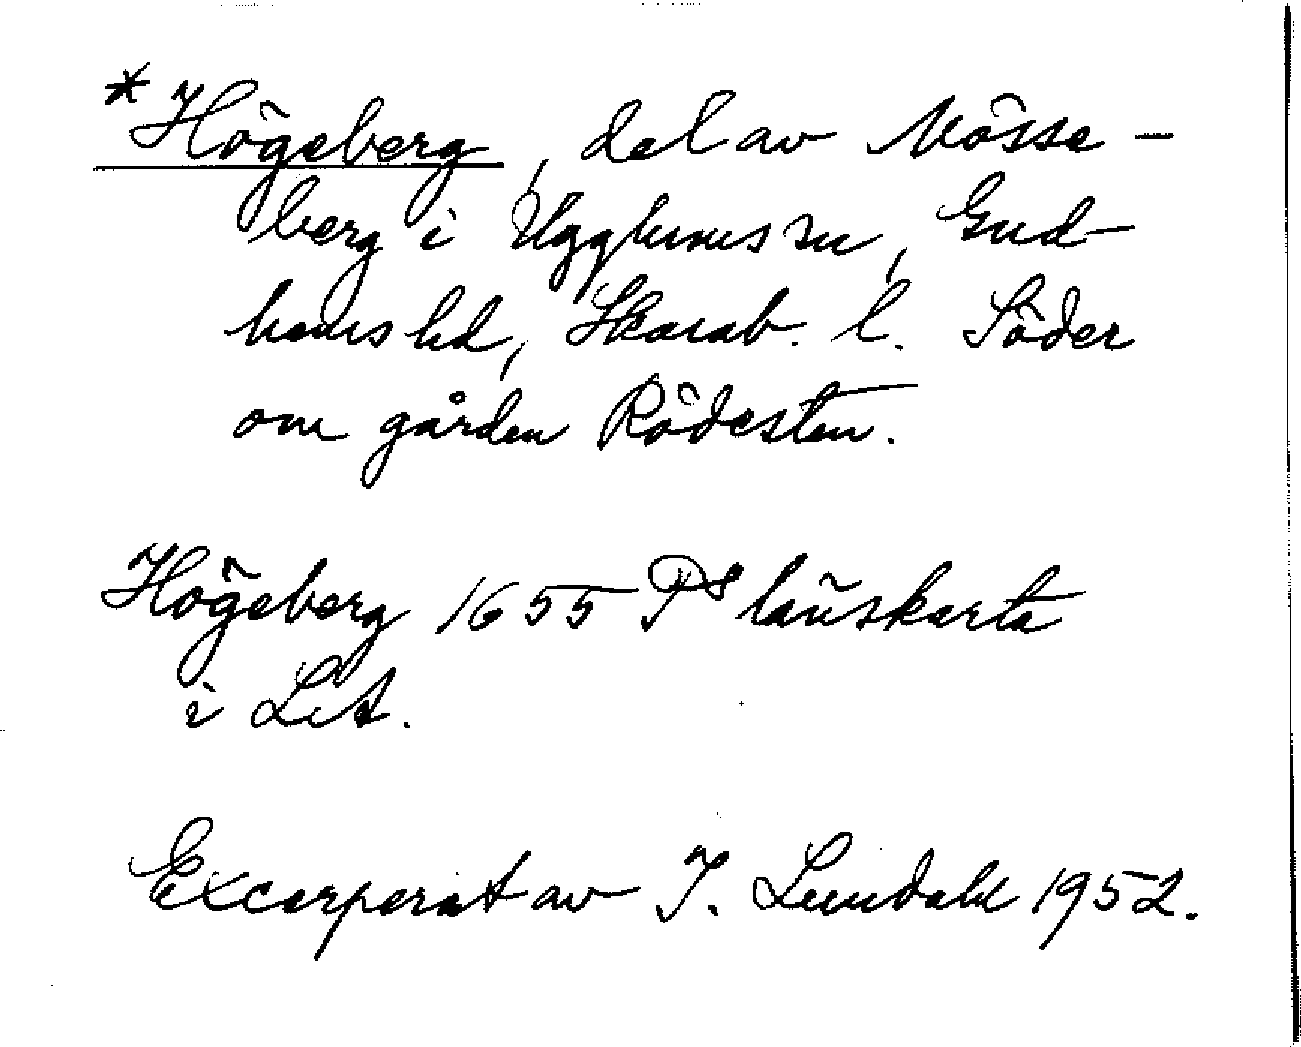 *Högeberg, del av Mösse-
berg i Ugglums sn, Gud-
hems hd, Skarab. l. Söder
om gården Rödesten.
Högeberg 1655 P8 länskarta
i LSA.
Excerperat av I. Lundahl 1952.